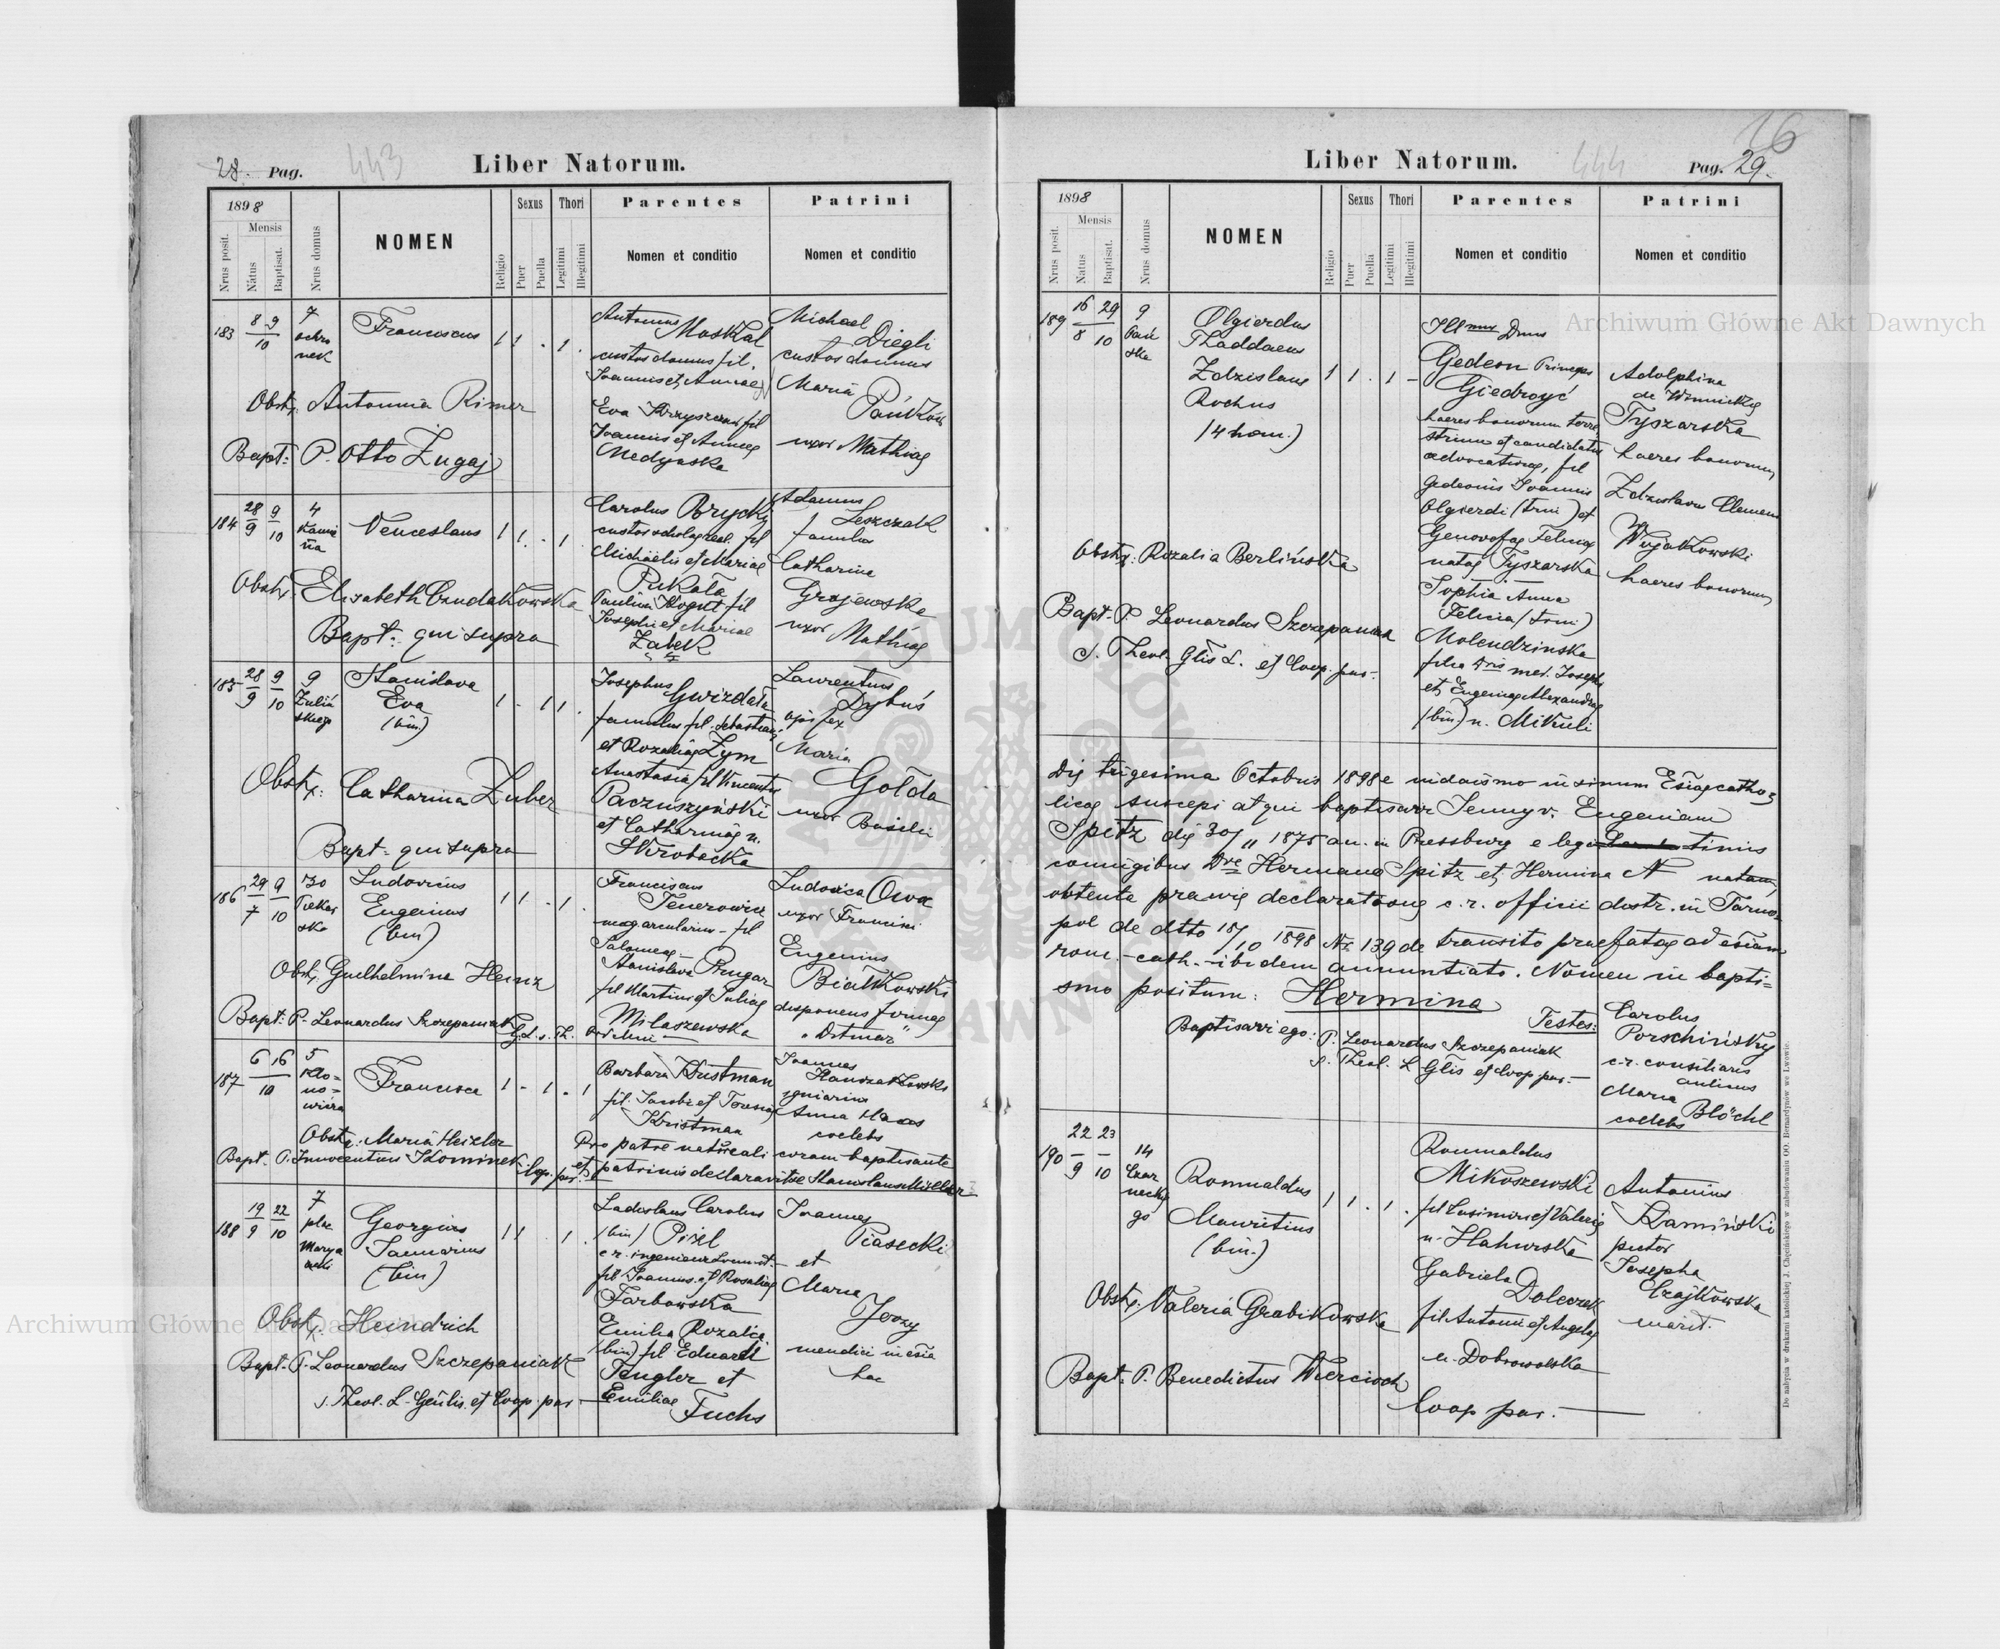 28. Pag.
443
Liber Natorum.
1898
Nrus posit.
Mensis
Natus
Baptisat.
Nrus domus
NOMEN
Religio
Sexus
Puer
Puella
Thori
Legitimi
Illegitimi
Parentes
Nomen et conditio
Patrini
Nomen et conditio
183 8 9 / 10 7 Franciscus 1 1 . 1 .
Antonius Moskal
custos domus fil.
Joannis et Annae
Eva
Joannis et Annae
Medyńska
Michael
Diegli
custos domus
Maria
Pańków
uxor Mathiae
Obstx. Antonina Rimer
Bapt: P. Otto Zugaj
184 28/9 9/10 4 Venceslaus 1 1 . 1
Carolus Brycki
Michaelis et Mariae
Pukała
Paulina Kogut fil
Josephi et Mariae
Ząbek
Adamus
Leszczak
famulus
Catharina
Grajewska
uxor Mathiae
Obstx. Elisabeth Bandakowska
Bapt: qui supra
185 28/9 9/10 9 Zulińskiego
Stanislava
Eva
(bin)
1 . 1 1 .
Josephus
Gwizdała
famulus fil. Sebastiani
et Rozaliae Zym
Anastasia fil Vincentii
Paczuszyński
et Catharinae n.
Skrobecka
Laurentius
Dybuś
opifex
Maria
Gołda
uxor Basilii
Obstx: Catharina Zuber
Bapt: qui supra
186 29/7 9/10 30 Piekarska
Ludovicus
Eugenius
(bin)
1 1 . 1 .
Franciscus
Tenerowicz
fil
Salomeae
Stanislava Prugar
fil Martini et Juliae
Milaszewska
Ludovica Owa
uxor Francisci
Eugenius
Białkowski
disponens firmae
"Ditmar"
Obstx. Guilhelmina Heinz
Bapt: P. Leonardus Szczepaniak
187 6 16 / 10 5 Klonowicza
Francisca 1 - 1 . 1
Barbara Kristman
fil. Jacobi et Teresiae
Kristman
Joannes
Anna
coelebs
Obstx.: Maria Heizler
Bapt. P. Innocentius Kominek Coop. par.
Pro patre naturali coram baptisante
et patrinis declaravit se Stanislaus Müller
188 19/9 22/10 7 plac Maryacki
Georgius
Januarius
(bin)
1 1 . 1 .
Ladislaus Carolus
(bin) Pixl
fil Joannis et Rosaliae
Farbowska
Emilia Rozalia
(bin) fil Eduardi
Tengler et
Emiliae
Fuchs
Joannes
Piasecki
et
Maria
Jerzy
mendici in ecclia
hac
Obstx: Heindrich
Bapt. P. Leonardus Szczepaniak
s. Theol. L. Gentis et Coop. par
16
444
Liber Natorum.
Pag. 29.
1898
Nrus posit.
Mensis
Natus
Baptisat.
Nrus domus
NOMEN
Religio
Sexus
Puer
Puella
Thori
Legitimi
Illegitimi
Parentes
Nomen et conditio
Patrini
Nomen et conditio
189 16/8 29/10 9 Pańska
Olgierdus
Thaddaeus
Zdzislaus
Rochus
(4 nom.)
1 1 . 1 -
Illmus Dnus
Gedeon Princeps
Giedroyć
haeres bonorum terrestrium et candidatus
advocaturae, fil
Gedeonis Joannis
Olgierdi (trni) et
Genovefae Feliciae
natae Tyszarska
Sophia Anna
Felicia (trni)
Molendzinska
filia Dris med. Josephi
et Eugeniae Alexandrae
(bin) n. Mikuli
Adolphina
de Winnickie
Tyszarska
haeres bonorum
Zdzislaus Clemens
Wujatkowski
haeres bonorum
Obstx: Rozalia Berlińska
Bapt. P. Leonardus Szczepaniak
s. Theol. Glis L. et Coop. par.
Die trigesima Octobris 1898 in sinum Ecclae catholicae
suscepi atque baptisavi Jenny v. Eugeniam
Spitz die 30/11 1875 an. in Pressburg e legitimis
coniugibus Dre Hermano Spitz et Hermina N natam,
obtenta praevie declaratione c.r. officii distr. in Tarnopol
de dtto 18/10 1898 Nr 139 de transitu praefatae ad eccliam
rom.-cath. ibidem annuntiato. Nomen in baptismo
positum: Hermina
Baptisavi ego: P. Leonardus Szczepaniak
s. Theol. L Glis et Coop par.
Testes: Carolus
Porschiński
c.r. consiliarius
aulicus
Maria Blöchl
coelebs
190 22/9 23/10 14 Czarneckiego
Romualdus
Mauritius
(bin.)
1 1 . 1 .
Romualdus
Mikoszewski
fil Casimiri et Valeriae
n.
Gabriela
Doleczek
fil Antonii et Angelae
n. Dobrowolska
Antonius
Kamiński
pictor
Josepha
Czajkowska
marit.
Obstx. Valeria Grabikowska
Bapt. P. Benedictus Wiercioch
Coop par.
Do nabycia w drukarni katolickiej J. Chęcińskiego w zabudowaniu OO. Bernardynów we Lwowie.
Archiwum Główne Akt Dawnych
Archiwum Główne Akt Dawnych
ARCHIWUM GŁÓWNE AKT DAWNYCH